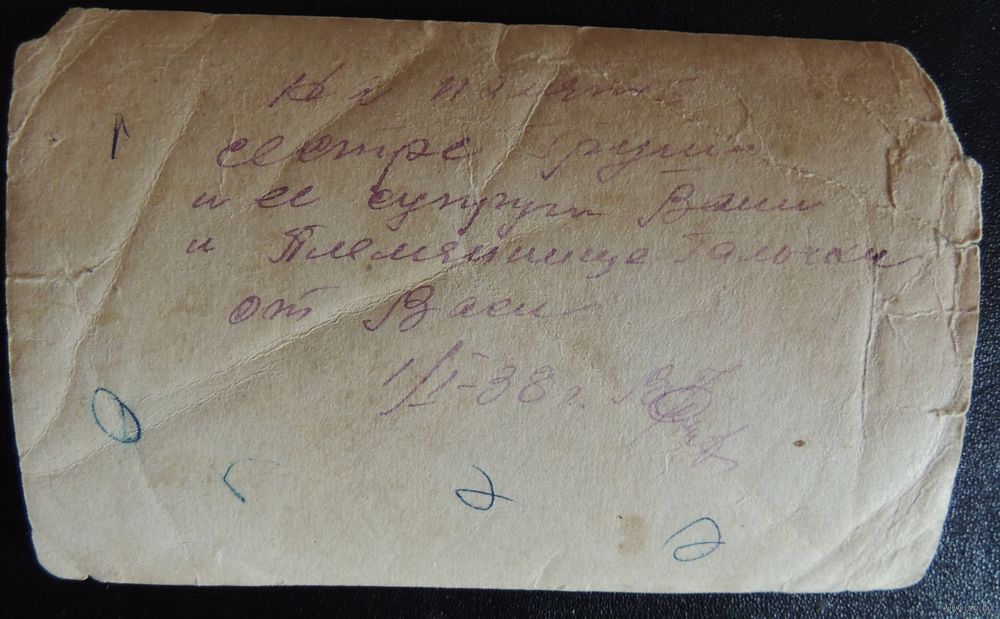 память
сестре Груши
и ее супругу Ваши
и Племяннице Галочки
от Васи
1/I-38 г.